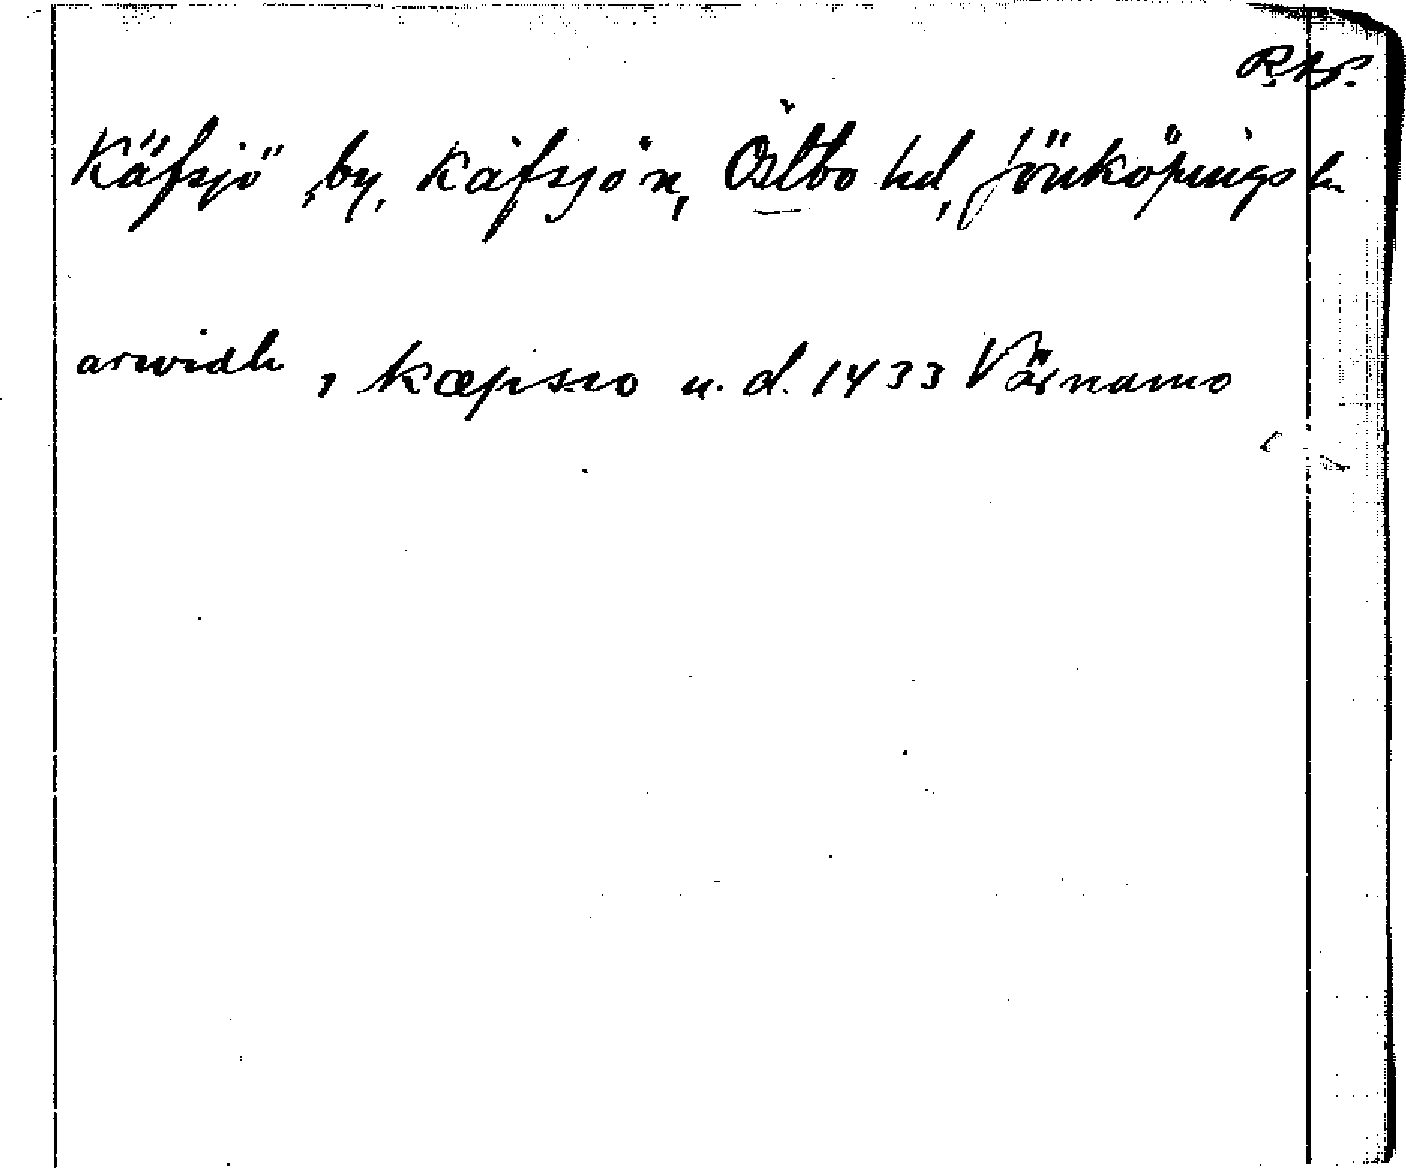 R.ap.
Käfsjö by, Käfsjö sn, Östbo hd, Jönköpings ln
arwidh, kæpsio u. d. 1433 Värnamo